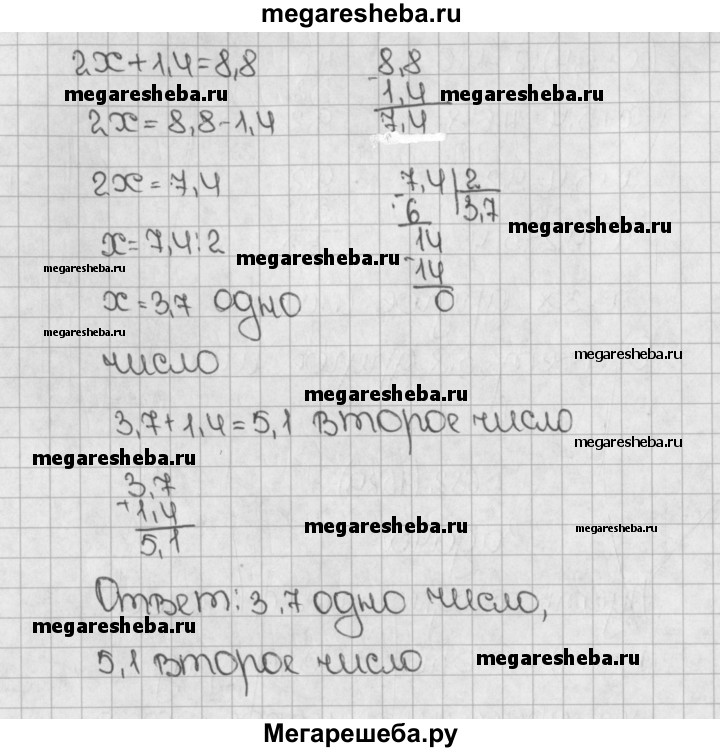 megaresheba.ru
2x+1,4=8,8
8,8
megaresheba.ru
- 1,4
megaresheba.ru
2x=8,8-1,4
7,4
2x=7,4
7,4 | 2
- 6
3,7
megaresheba.ru
x=7,4:2
14
megaresheba.ru
megaresheba.ru
- 14
x=3,7 одно
0
megaresheba.ru
megaresheba.ru
число
megaresheba.ru
3,7+1,4=5,1 второе число
megaresheba.ru
megaresheba.ru
3,7
+ 1,4
megaresheba.ru
megaresheba.ru
5,1
Ответ: 3,7 одно число,
megaresheba.ru
5,1 второе число
megaresheba.ru
Мегарешеба.ру